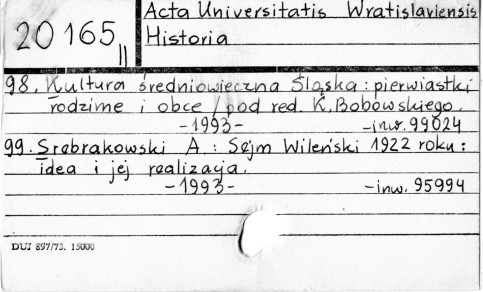 20165 II
Acta Universitatis Wratislaviensis
Historia
98. Kultura średniowieczna Śląska: pierwiastki
rodzime i obce / pod red. K. Bobowskiego.
-1993- -inw. 99024
99. Srebrakowski A.: Sejm Wileński 1922 roku:
idea i jej realizacja.
-1993- -inw. 95994
DUJ 897/73. 15000